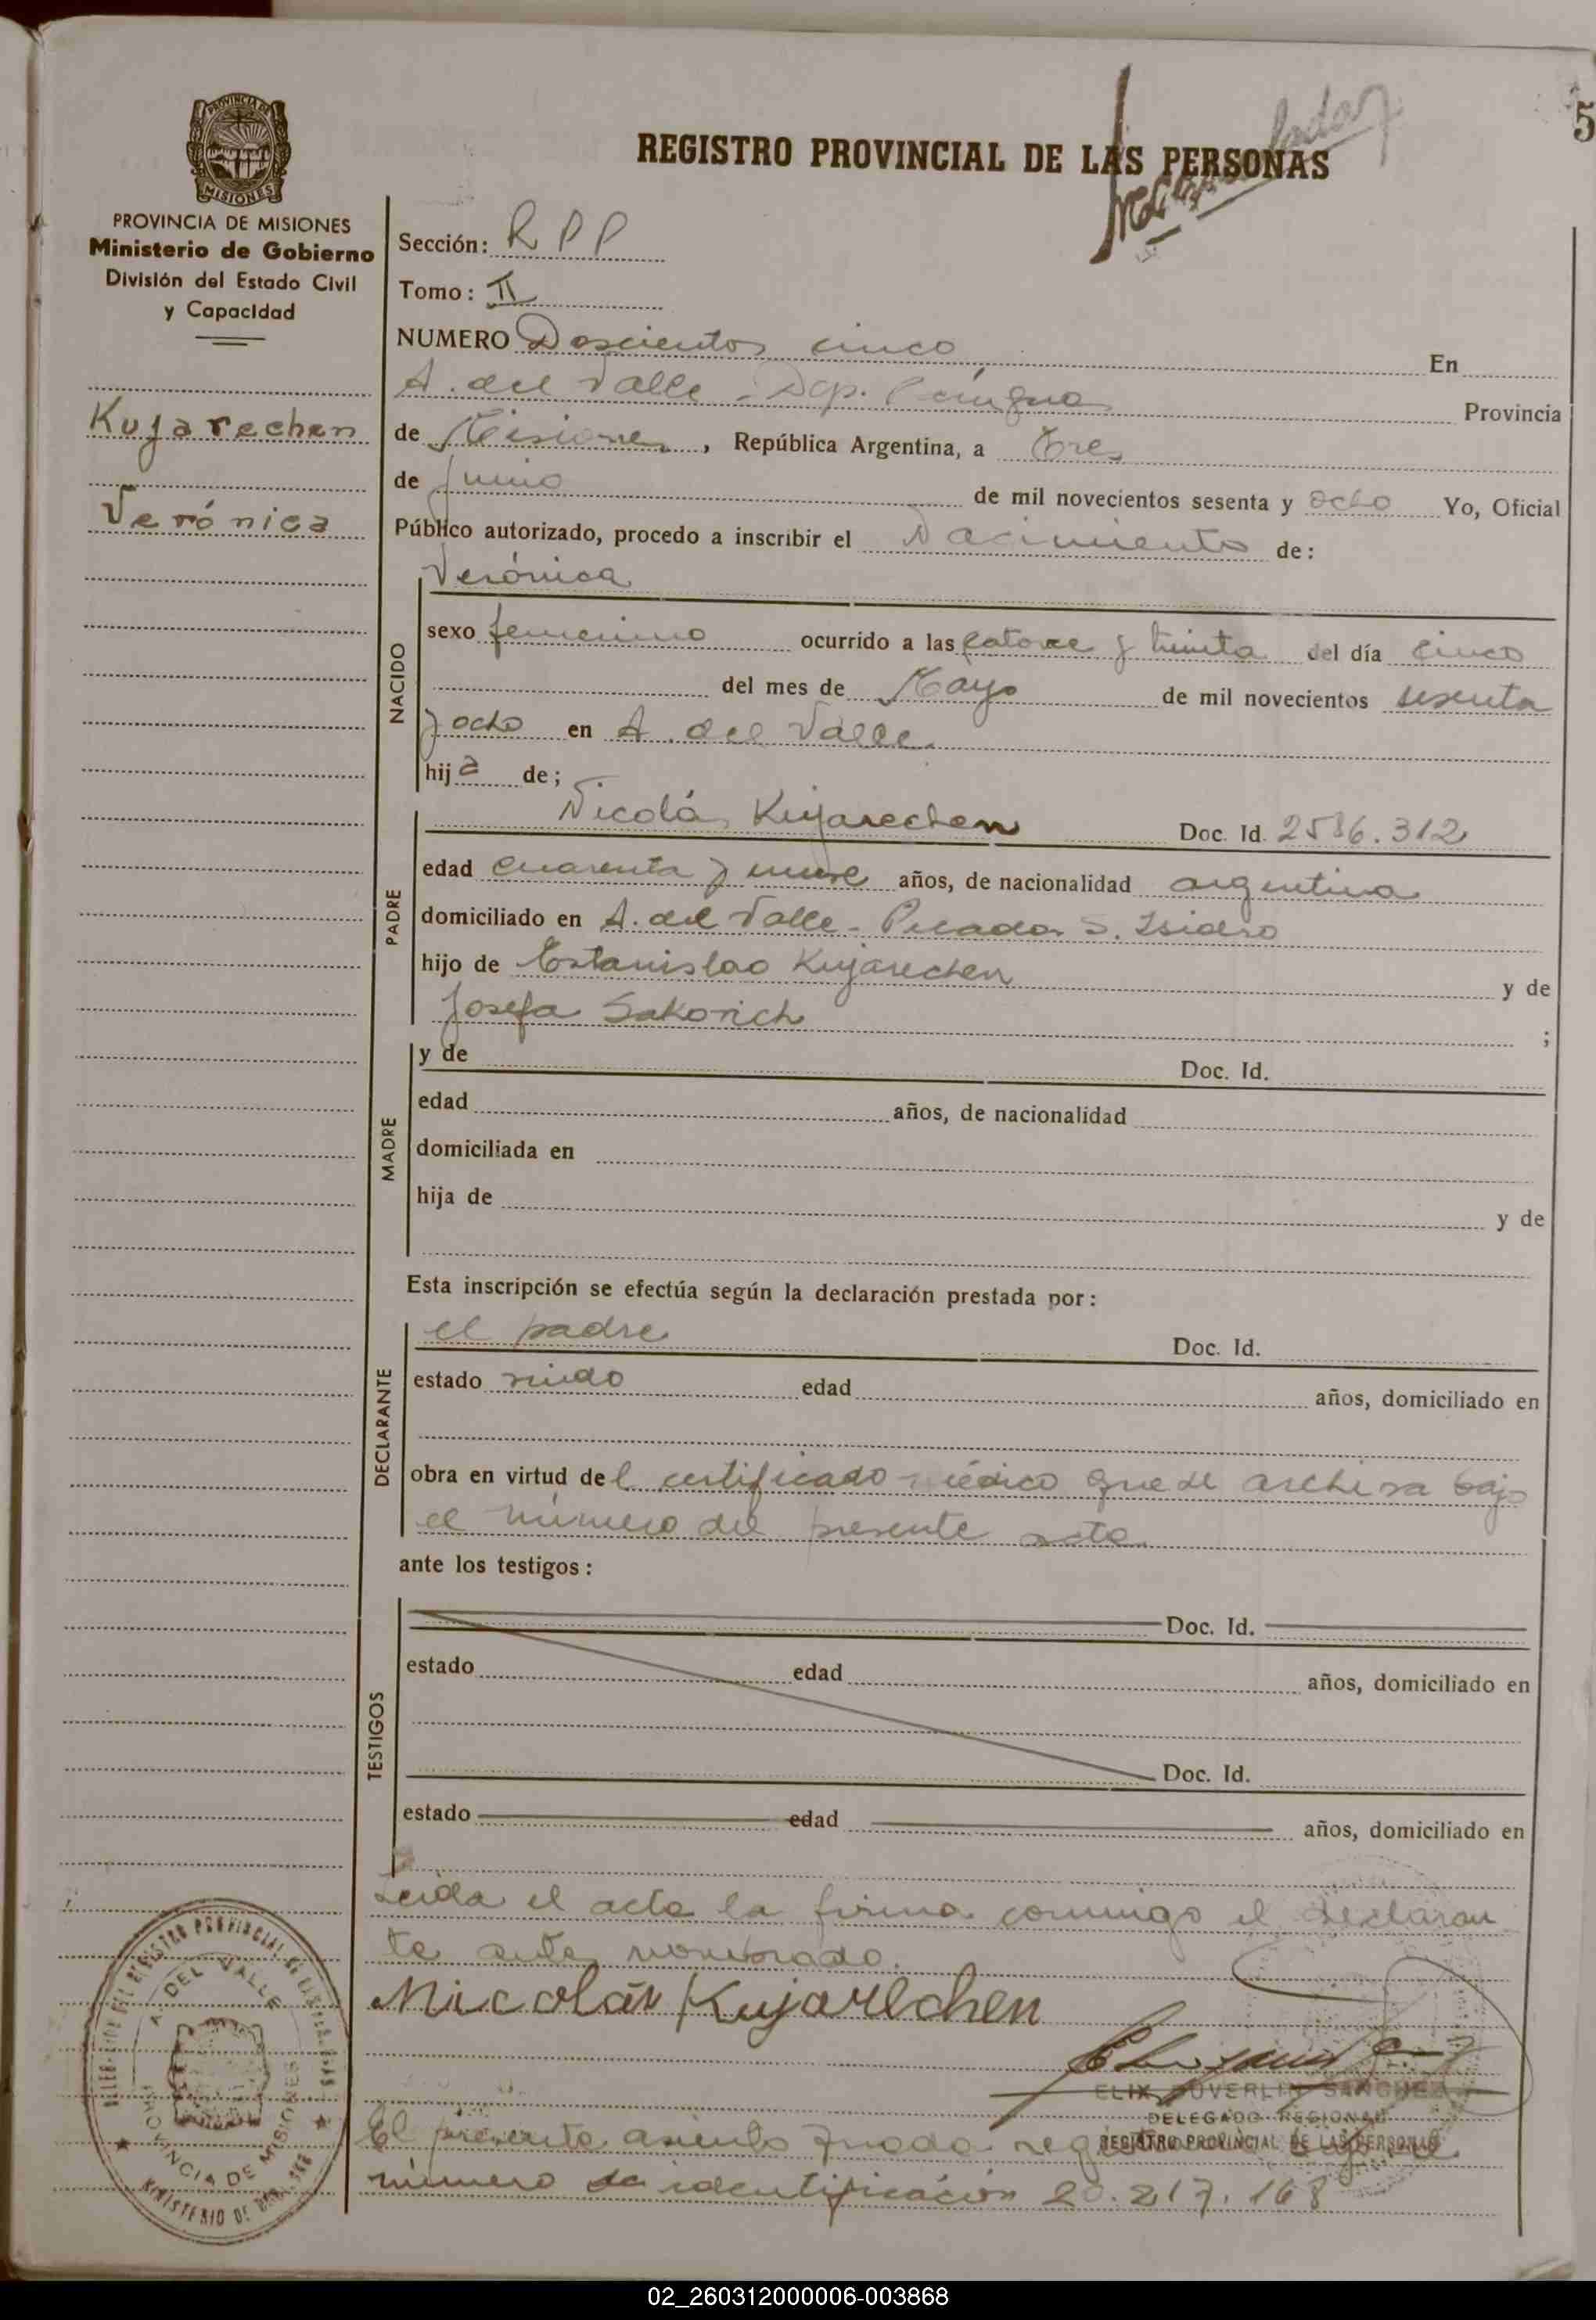 5
REGISTRO PROVINCIAL DE LAS PERSONAS
PROVINCIA DE MISIONES
Ministerio de Gobierno
División del Estado Civil
y Capacidad
Kujarechen
Verónica
Sección: R P P
Tomo: II
NUMERO Doscientos cinco En
A. del Valle - Dep. Cainguas Provincia
de Misiones, República Argentina, a tres
de junio de mil novecientos sesenta y ocho Yo, Oficial
Público autorizado, procedo a inscribir el Nacimiento de:
NACIDO
Verónica
sexo femenino ocurrido a las catorce y treinta del día cinco
del mes de Mayo de mil novecientos sesenta
y ocho en A. del Valle
hija de;
PADRE
Nicolás Kujarechen Doc. Id. 2586.312
edad cuarenta y nueve años, de nacionalidad argentina
domiciliado en A. del Valle - Picada S. Isidro
hijo de Estanislao Kujarechen y de
Josefa Sakovich ;
MADRE
y de Doc. Id.
edad años, de nacionalidad
domiciliada en
hija de y de
Esta inscripción se efectúa según la declaración prestada por:
DECLARANTE
el padre Doc. Id.
estado viudo edad años, domiciliado en
obra en virtud del certificado médico que se archiva bajo
el número del presente acta
ante los testigos:
TESTIGOS
Doc. Id.
estado edad años, domiciliado en
Doc. Id.
estado edad años, domiciliado en
Leida el acta la firma conmigo el declaran
te antes nombrado.
Nicolás Kujarechen
SANCHEZ
DELEGADO REGIONAL
REGISTRO PROVINCIAL DE LAS PERSONAS
El presente asiento queda
número de identificación 20.217.168
A. DEL VALLE
PROVINCIA DE MISIONES
02_260312000006-003868